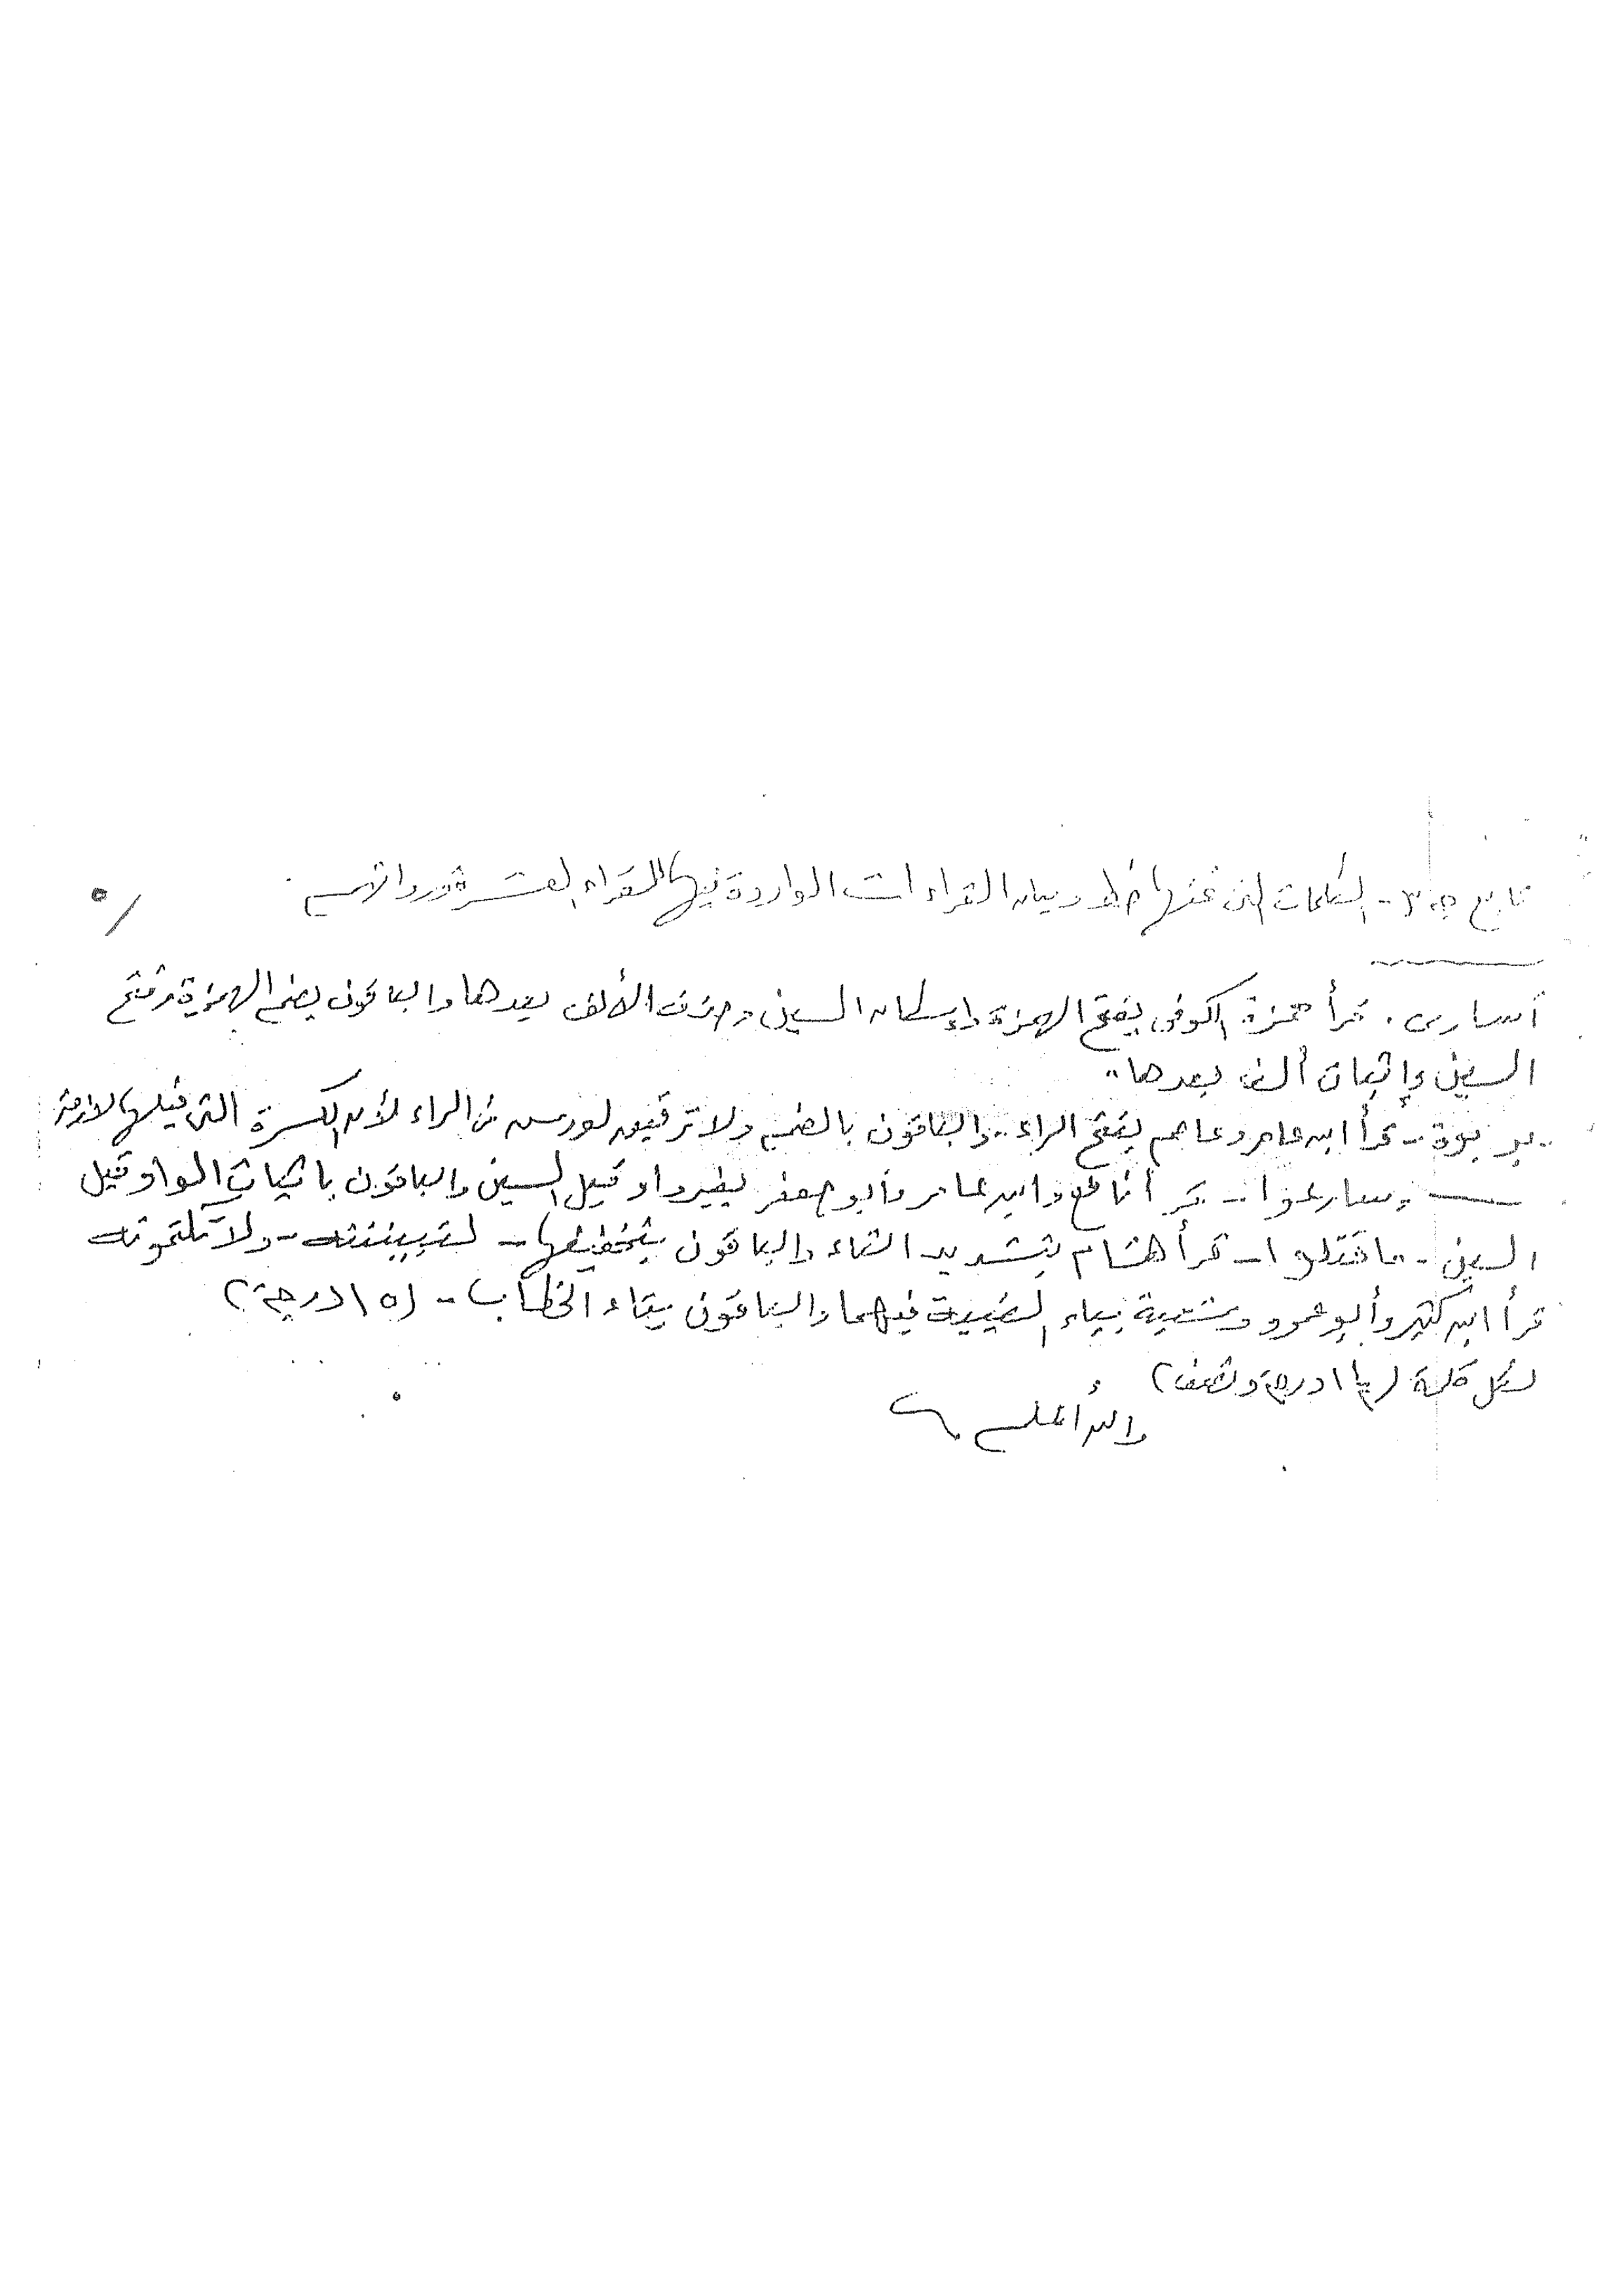 تابع ج٣ - الكلمات التى تحتها خط وبيان القراءات الواردة فيها للقراء العشرة ورواتهم
/٥
أسارى . قرأ حمزة الكوفى بفتح الهمزة وإسكان السين وحذف الألف بعدها والباقون بضم الهمزة وفتح
السين وإثبات ألف بعدها ..
بربوة - قرأ ابن عامر وعاصم بفتح الراء .. والباقون بالضم ولا ترقيق لورش فى الراء لأن الكسرة التى قبلها لازمة
وسارعوا - قرأ نافع وابن عامر وأبو جعفر بغير واو قبل السين والباقون بإثبات الواو قبل
السين - ما قتلوا - قرأ هشام بتشديد التاء والباقون بتخفيفها - لتبيننه - ولا تكتمونه
قرأ ابن كثير وأبو عمرو وشعبة بياء الغيبة فيهما والباقون بتاء الخطاب - (١٥ درجة)
لكل كلمة ( درجة ونصف)
والله أعلم